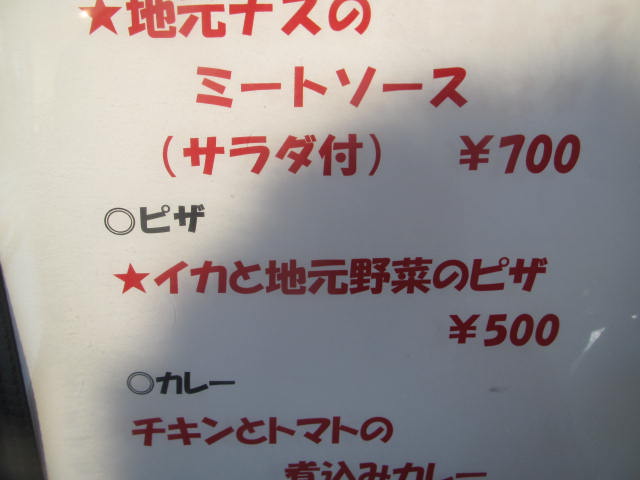 ★地元ナスの
ミートソース
（サラダ付） ￥700
◎ピザ
★イカと地元野菜のピザ
￥500
◎カレー
チキンとトマトの
煮込みカレー